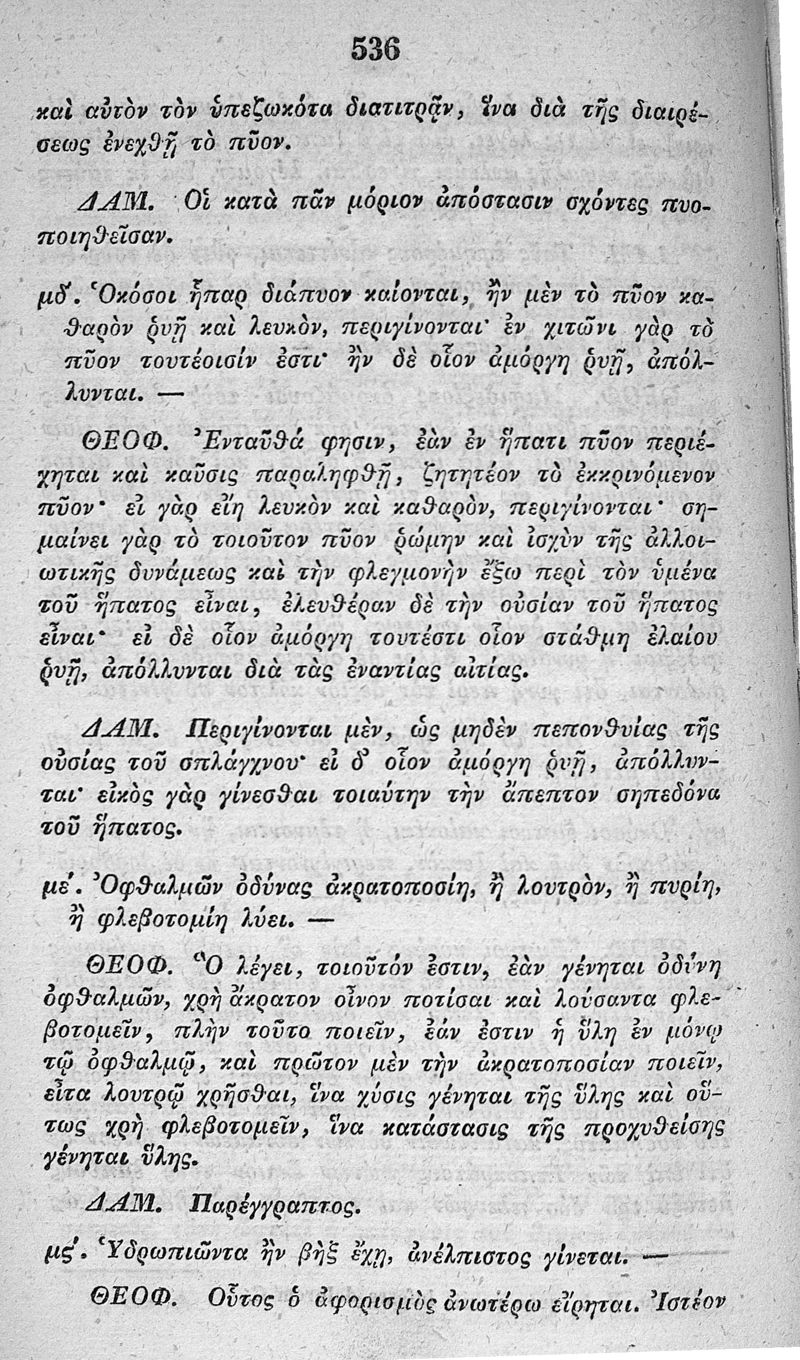 536
καὶ αὐτὸν τὸν ὑπεζωκότα διατιτρᾷν, ἵνα διὰ τῆς διαιρέ-
σεως ἐνεχθῇ τὸ πῦον.
ΔΑΜ. Οἱ κατὰ πᾶν μόριον ἀπόστασιν σχόντες πυο-
ποιηθεῖσαν.
μδ'. Ὁκόσοι ἧπαρ διάπυον καίονται, ἢν μὲν τὸ πῦον κα-
θαρὸν ῥυῇ καὶ λευκὸν, περιγίνονται· ἐν χιτῶνι γὰρ τὸ
πῦον τουτέοισίν ἐστι· ἢν δὲ οἷον ἀμόργη ῥυῇ, ἀπόλ-
λυνται. —
ΘΕΟΦ. Ἐνταῦθά φησιν, ἐὰν ἐν ἥπατι πῦον περιέ-
χηται καὶ καῦσις παραληφθῇ, ζητητέον τὸ ἐκκρινόμενον
πῦον· εἰ γὰρ εἴη λευκὸν καὶ καθαρὸν, περιγίνονται· ση-
μαίνει γὰρ τὸ τοιοῦτον πῦον ῥώμην καὶ ἰσχὺν τῆς ἀλλοι-
ωτικῆς δυνάμεως καὶ τὴν φλεγμονὴν ἔξω περὶ τὸν ὑμένα
τοῦ ἥπατος εἶναι, ἐλευθέραν δὲ τὴν οὐσίαν τοῦ ἥπατος
εἶναι· εἰ δὲ οἷον ἀμόργη τουτέστι οἷον στάθμη ἐλαίου
ῥυῇ, ἀπόλλυνται διὰ τὰς ἐναντίας αἰτίας.
ΔΑΜ. Περιγίνονται μὲν, ὡς μηδὲν πεπονθυίας τῆς
οὐσίας τοῦ σπλάγχνου· εἰ δ' οἷον ἀμόργη ῥυῇ, ἀπόλλυν-
ται· εἰκὸς γὰρ γίνεσθαι τοιαύτην τὴν ἄπεπτον σηπεδόνα
τοῦ ἥπατος.
με'. Ὀφθαλμῶν ὀδύνας ἀκρατοποσίη, ἢ λουτρὸν, ἢ πυρίη,
ἢ φλεβοτομίη λύει. —
ΘΕΟΦ. Ὃ λέγει, τοιοῦτόν ἐστιν, ἐὰν γένηται ὀδύνη
ὀφθαλμῶν, χρὴ ἄκρατον οἶνον ποτίσαι καὶ λούσαντα φλε-
βοτομεῖν, πλὴν τοῦτο ποιεῖν, ἐάν ἐστιν ἡ ὕλη ἐν μόνῳ
τῷ ὀφθαλμῷ, καὶ πρῶτον μὲν τὴν ἀκρατοποσίαν ποιεῖν,
εἶτα λουτρῷ χρῆσθαι, ἵνα χύσις γένηται τῆς ὕλης καὶ οὕ-
τως χρὴ φλεβοτομεῖν, ἵνα κατάστασις τῆς προχυθείσης
γένηται ὕλης.
ΔΑΜ. Παρέγγραπτος.
μς'. Ὑδρωπιῶντα ἢν βὴξ ἔχῃ, ἀνέλπιστος γίνεται. —
ΘΕΟΦ. Οὗτος ὁ ἀφορισμὸς ἀνωτέρω εἴρηται. Ἰστέον